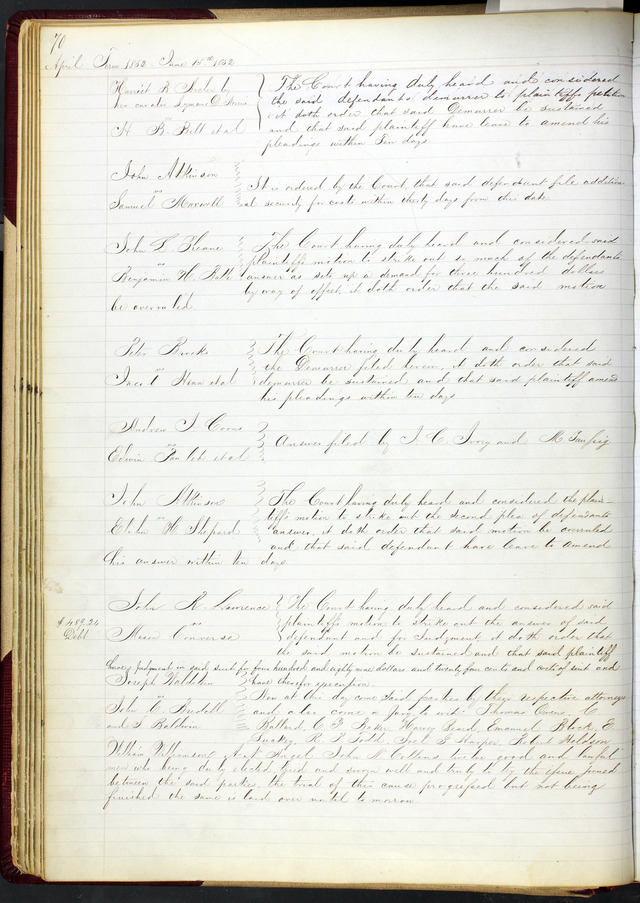 70
April Term 1852 June 15th 1852
Harriet R. by
her curator Lyman D.
vs
H. B. Belt et al
The Court having duly heard and considered
the said defendants demurrer to plaintiffs petition
it doth order that said Demurrer be sustained
and that said plaintiff have leave to amend his
pleadings within Ten days
John Atkinson
vs
Samuel Maxwell
It is ordered by the Court, that said defendant file addition
al security for costs within thirty days from this date
John F.
vs
Benjamin W.
The Court having duly heard and considered said
plaintiffs motion to strike out so much of the defendants
answer as sets up a demand for three hundred dollars
by way of offset, it doth order that the said motion
be overruled
Peter Brooks
vs
Jacob et al
The Court having duly heard and considered
the Demurrer filed herein, it doth order that said
demurrer be sustained and that said plaintiff amend
his pleadings within ten days
Andrew J. Coons
vs
Edwin et al
Answer filed by J. C. Ivory and M.
John Atkinson
vs
Elihu H. Shepard
The Court having duly heard and considered the plain-
tiffs motion to strike out the second plea of defendants
answer, it doth order that said motion be
and that said defendant have leave to amend
his answer within ten days
$489.24
Debt
John R. Lawrence
vs
Converse
The Court having duly heard and considered said
plaintiffs motion to strike out the answer of said
defendant and for Judgment, it doth order that
the said motion be sustained and that said plaintiff
have judgment in said suit for four hundred and eighty nine dollars and twenty four cents and costs of suit and
have therefor execution
Joseph
vs
John C.
and S. Baldwin
Now at this day come said parties by their respective attorneys
and also come a jury to wit: Thomas Owens, C.
Ballard, C. F. Harvey Beard, Emanuel Block, E
R. L. Todd, Harper, Robert
William Williamson, Nagel, John Collins twelve good and lawful
men who being duly elected tried and sworn well and truly to try the issue joined
between the said parties, the trial of this cause progressed but not being
finished the same is laid over until to morrow.